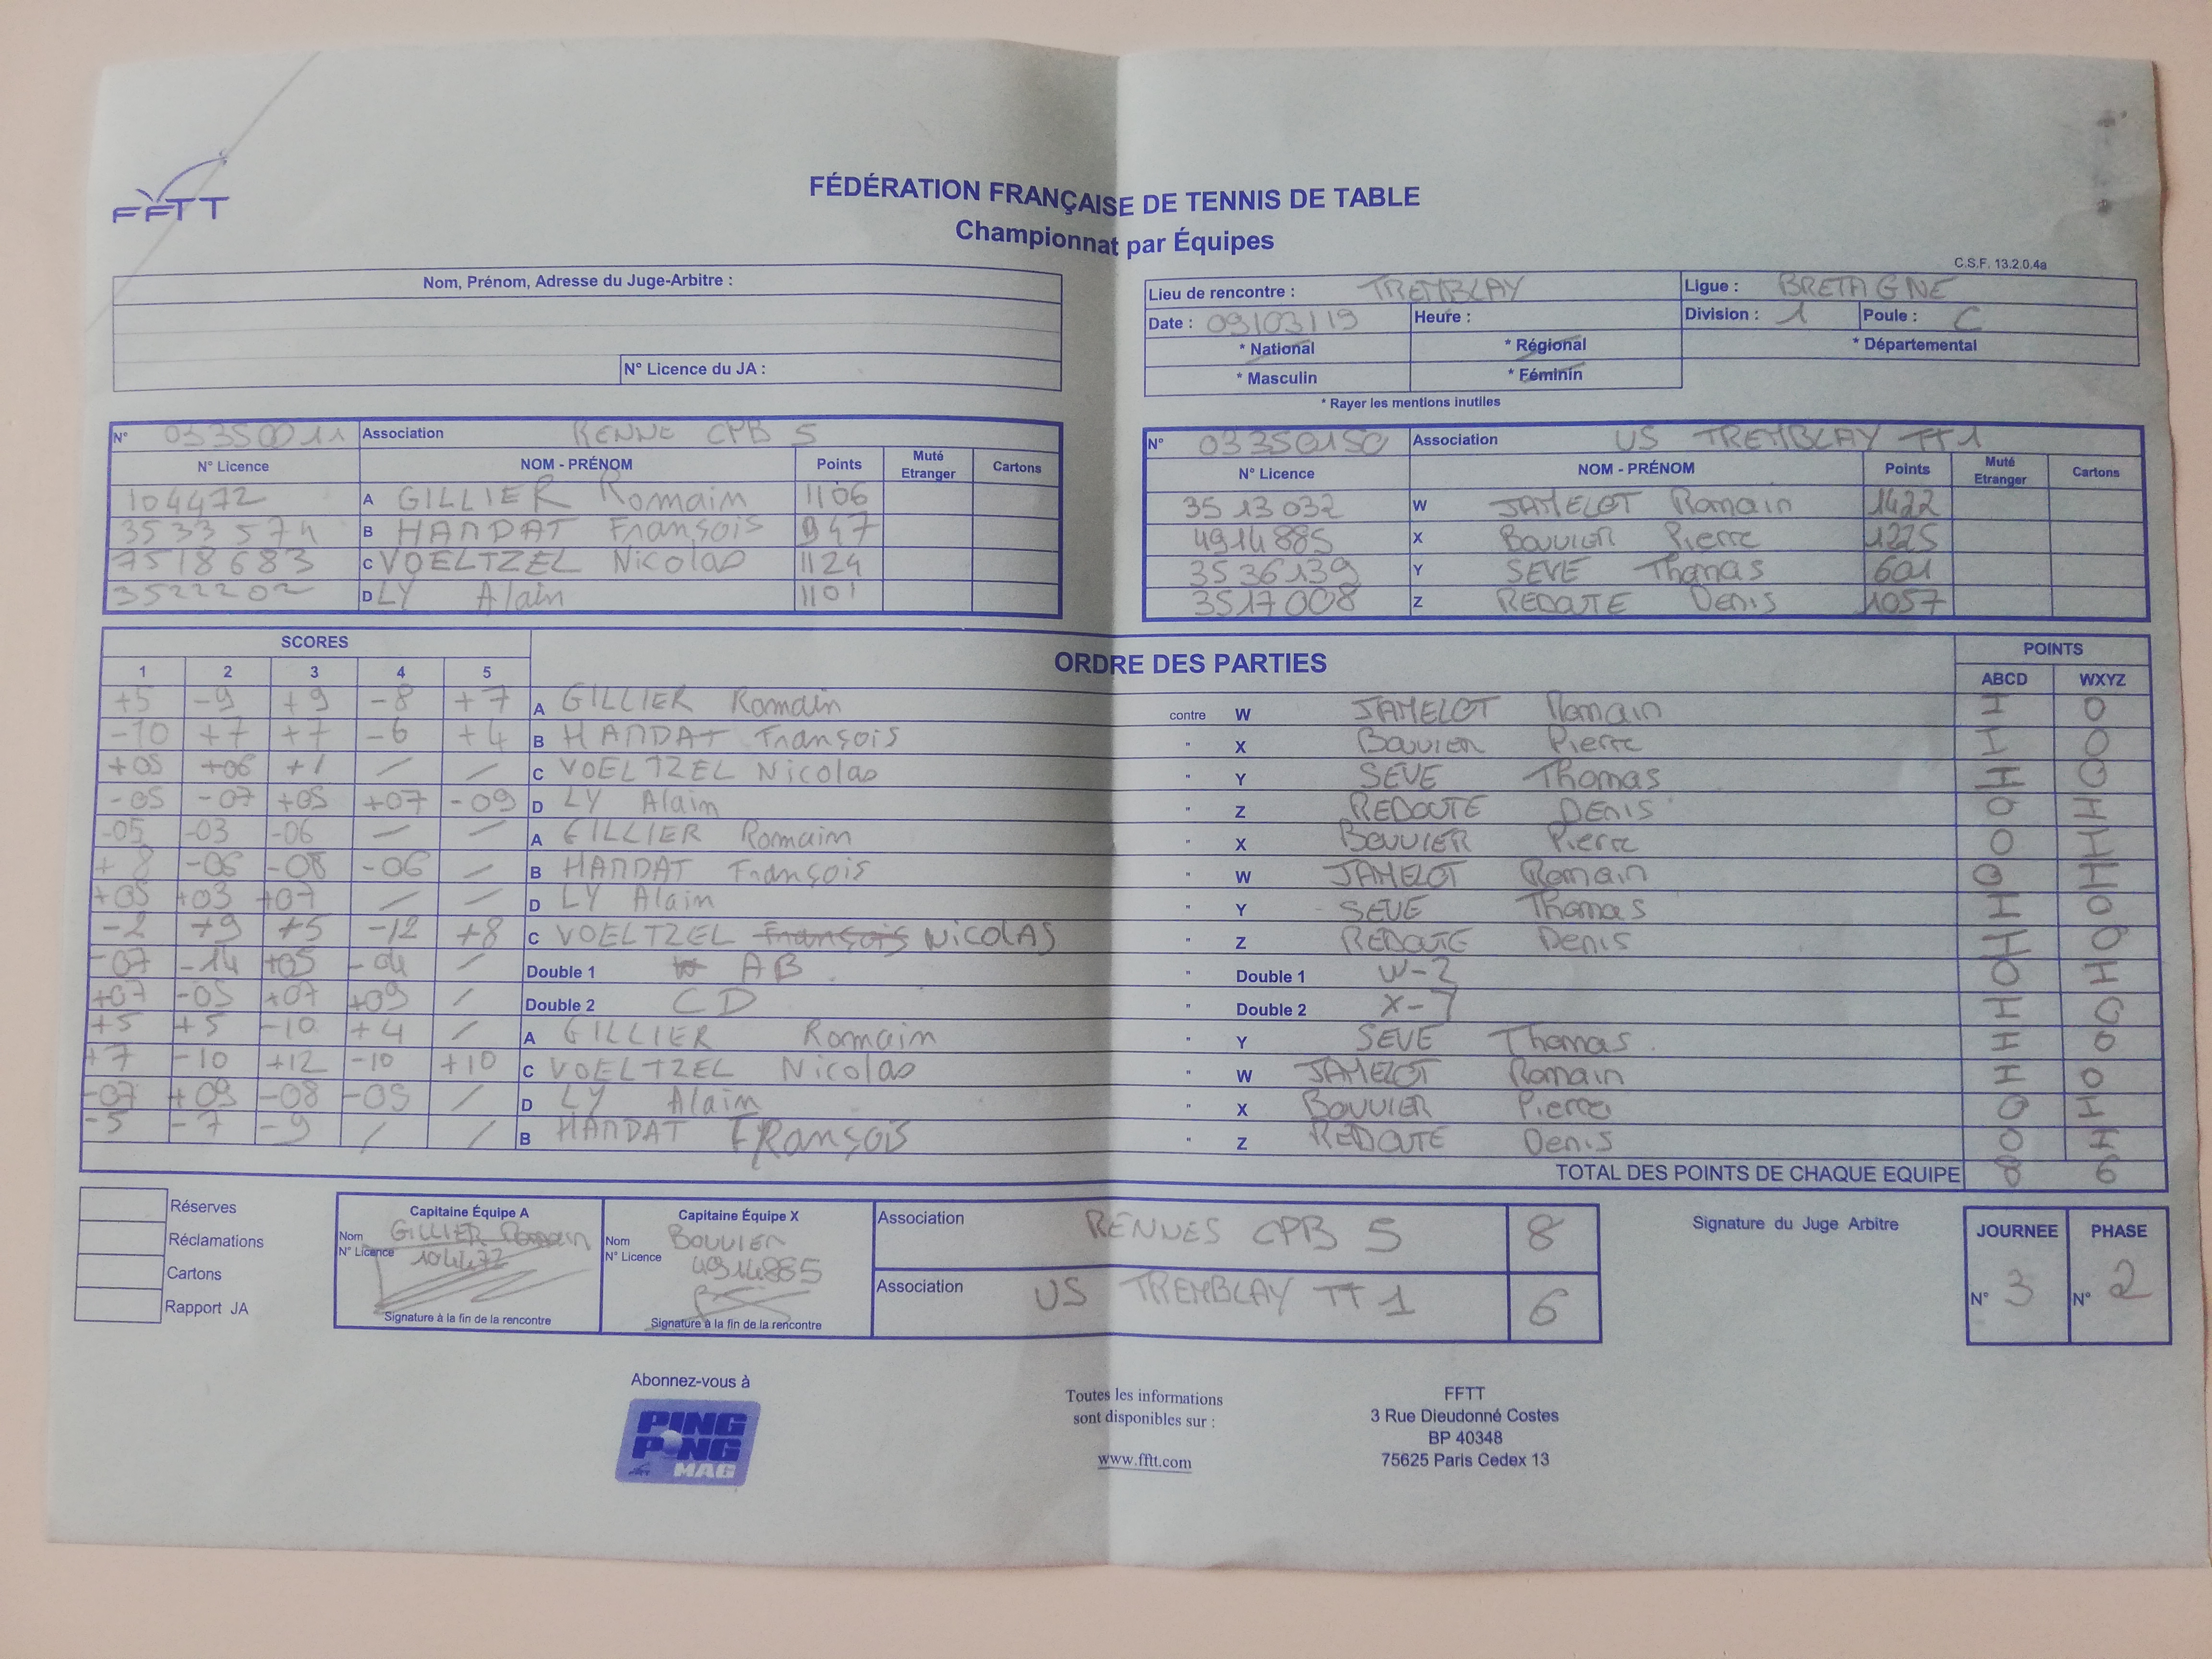 FFTT
FÉDÉRATION FRANÇAISE DE TENNIS DE TABLE
Championnat par Équipes
C.S.F. 13.2.0.4a
Nom, Prénom, Adresse du Juge-Arbitre :
N° Licence du JA :
Lieu de rencontre : TREMBLAY Ligue : BRETAGNE
Date : 09/03/19 Heure : Division : 1 Poule : C
* National * Régional * Départemental
* Masculin * Féminin
* Rayer les mentions inutiles
N° 03350011 Association RENNE CPB 5
N° Licence NOM - PRÉNOM Points Muté Etranger Cartons
104472 A GILLIER Romain 1106
3533574 B HANDAT François 947
7518683 C VOELTZEL Nicolas 1124
3522202 D LY Alain 1101
N° 03350150 Association US TREMBLAY TT1
N° Licence NOM - PRÉNOM Points Muté Etranger Cartons
3513032 W JAMELOT Romain 1422
4914885 X BOUVIER Pierre 1225
3536139 Y SEVE Thomas 601
3517008 Z REDOUTE Denis 1057
SCORES ORDRE DES PARTIES POINTS
1 2 3 4 5 ABCD WXYZ
+5 -9 +9 -8 +7 A GILLIER Romain contre W JAMELOT Romain I 0
-10 +7 +7 -6 +4 B HANDAT François " X BOUVIER Pierre I 0
+05 +06 +1 / / C VOELTZEL Nicolas " Y SEVE Thomas I 0
-05 -07 +05 +07 -09 D LY Alain " Z REDOUTE DENIS 0 I
-05 -03 -06 / / A GILLIER Romain " X BOUVIER Pierre 0 I
+8 -06 -08 -06 / B HANDAT François " W JAMELOT Romain 0 I
+05 +03 +07 / / D LY Alain " Y SEVE Thomas I 0
-2 +9 +5 -12 +8 C VOELTZEL François NICOLAS " Z REDOUTE Denis I 0
-07 -14 +05 -04 / Double 1 AB " Double 1 W-Z 0 I
+07 -05 +07 +09 / Double 2 CD " Double 2 X-Y I 0
+5 +5 -10 +4 / A GILLIER Romain " Y SEVE Thomas I 0
+7 -10 +12 -10 +10 C VOELTZEL Nicolas " W JAMELOT Romain I 0
-07 +09 -08 -05 / D LY Alain " X BOUVIER Pierre 0 I
-5 -7 -9 / / B HANDAT FRançois " Z REDOUTE Denis 0 I
TOTAL DES POINTS DE CHAQUE EQUIPE 8 6
Réserves
Réclamations
Cartons
Rapport JA
Capitaine Équipe A
Nom GILLIER Romain
N° Licence 104472
Signature à la fin de la rencontre
Capitaine Équipe X
Nom BOUVIER
N° Licence 4914885
Signature à la fin de la rencontre
Association RENNES CPB 5 8
Association US TREMBLAY TT 1 6
Signature du Juge Arbitre
JOURNEE PHASE
N° 3 N° 2
Abonnez-vous à
PING PONG MAG
Toutes les informations
sont disponibles sur :
www.fftt.com
FFTT
3 Rue Dieudonné Costes
BP 40348
75625 Paris Cedex 13